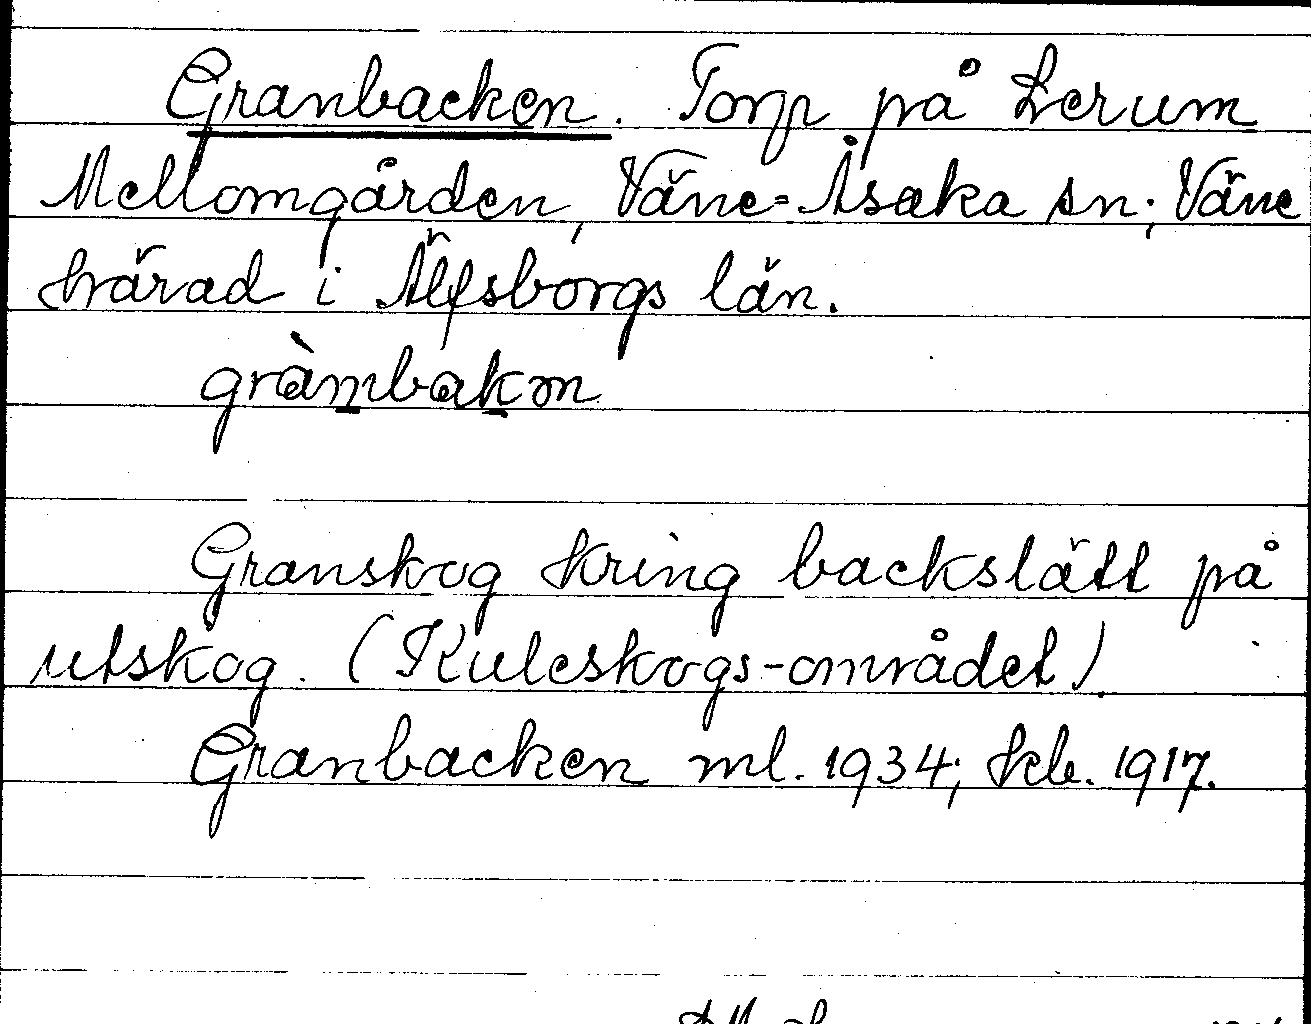 Granbacken. Torp på Lerum
Mellomgården, Väne-Åsaka sn; Väne
härad i Älfsborgs län.
gràmbakm
Granskog kring backslätt på
utskog. (Kuleskogs-området).
Granbacken ml. 1934; kb. 1917.